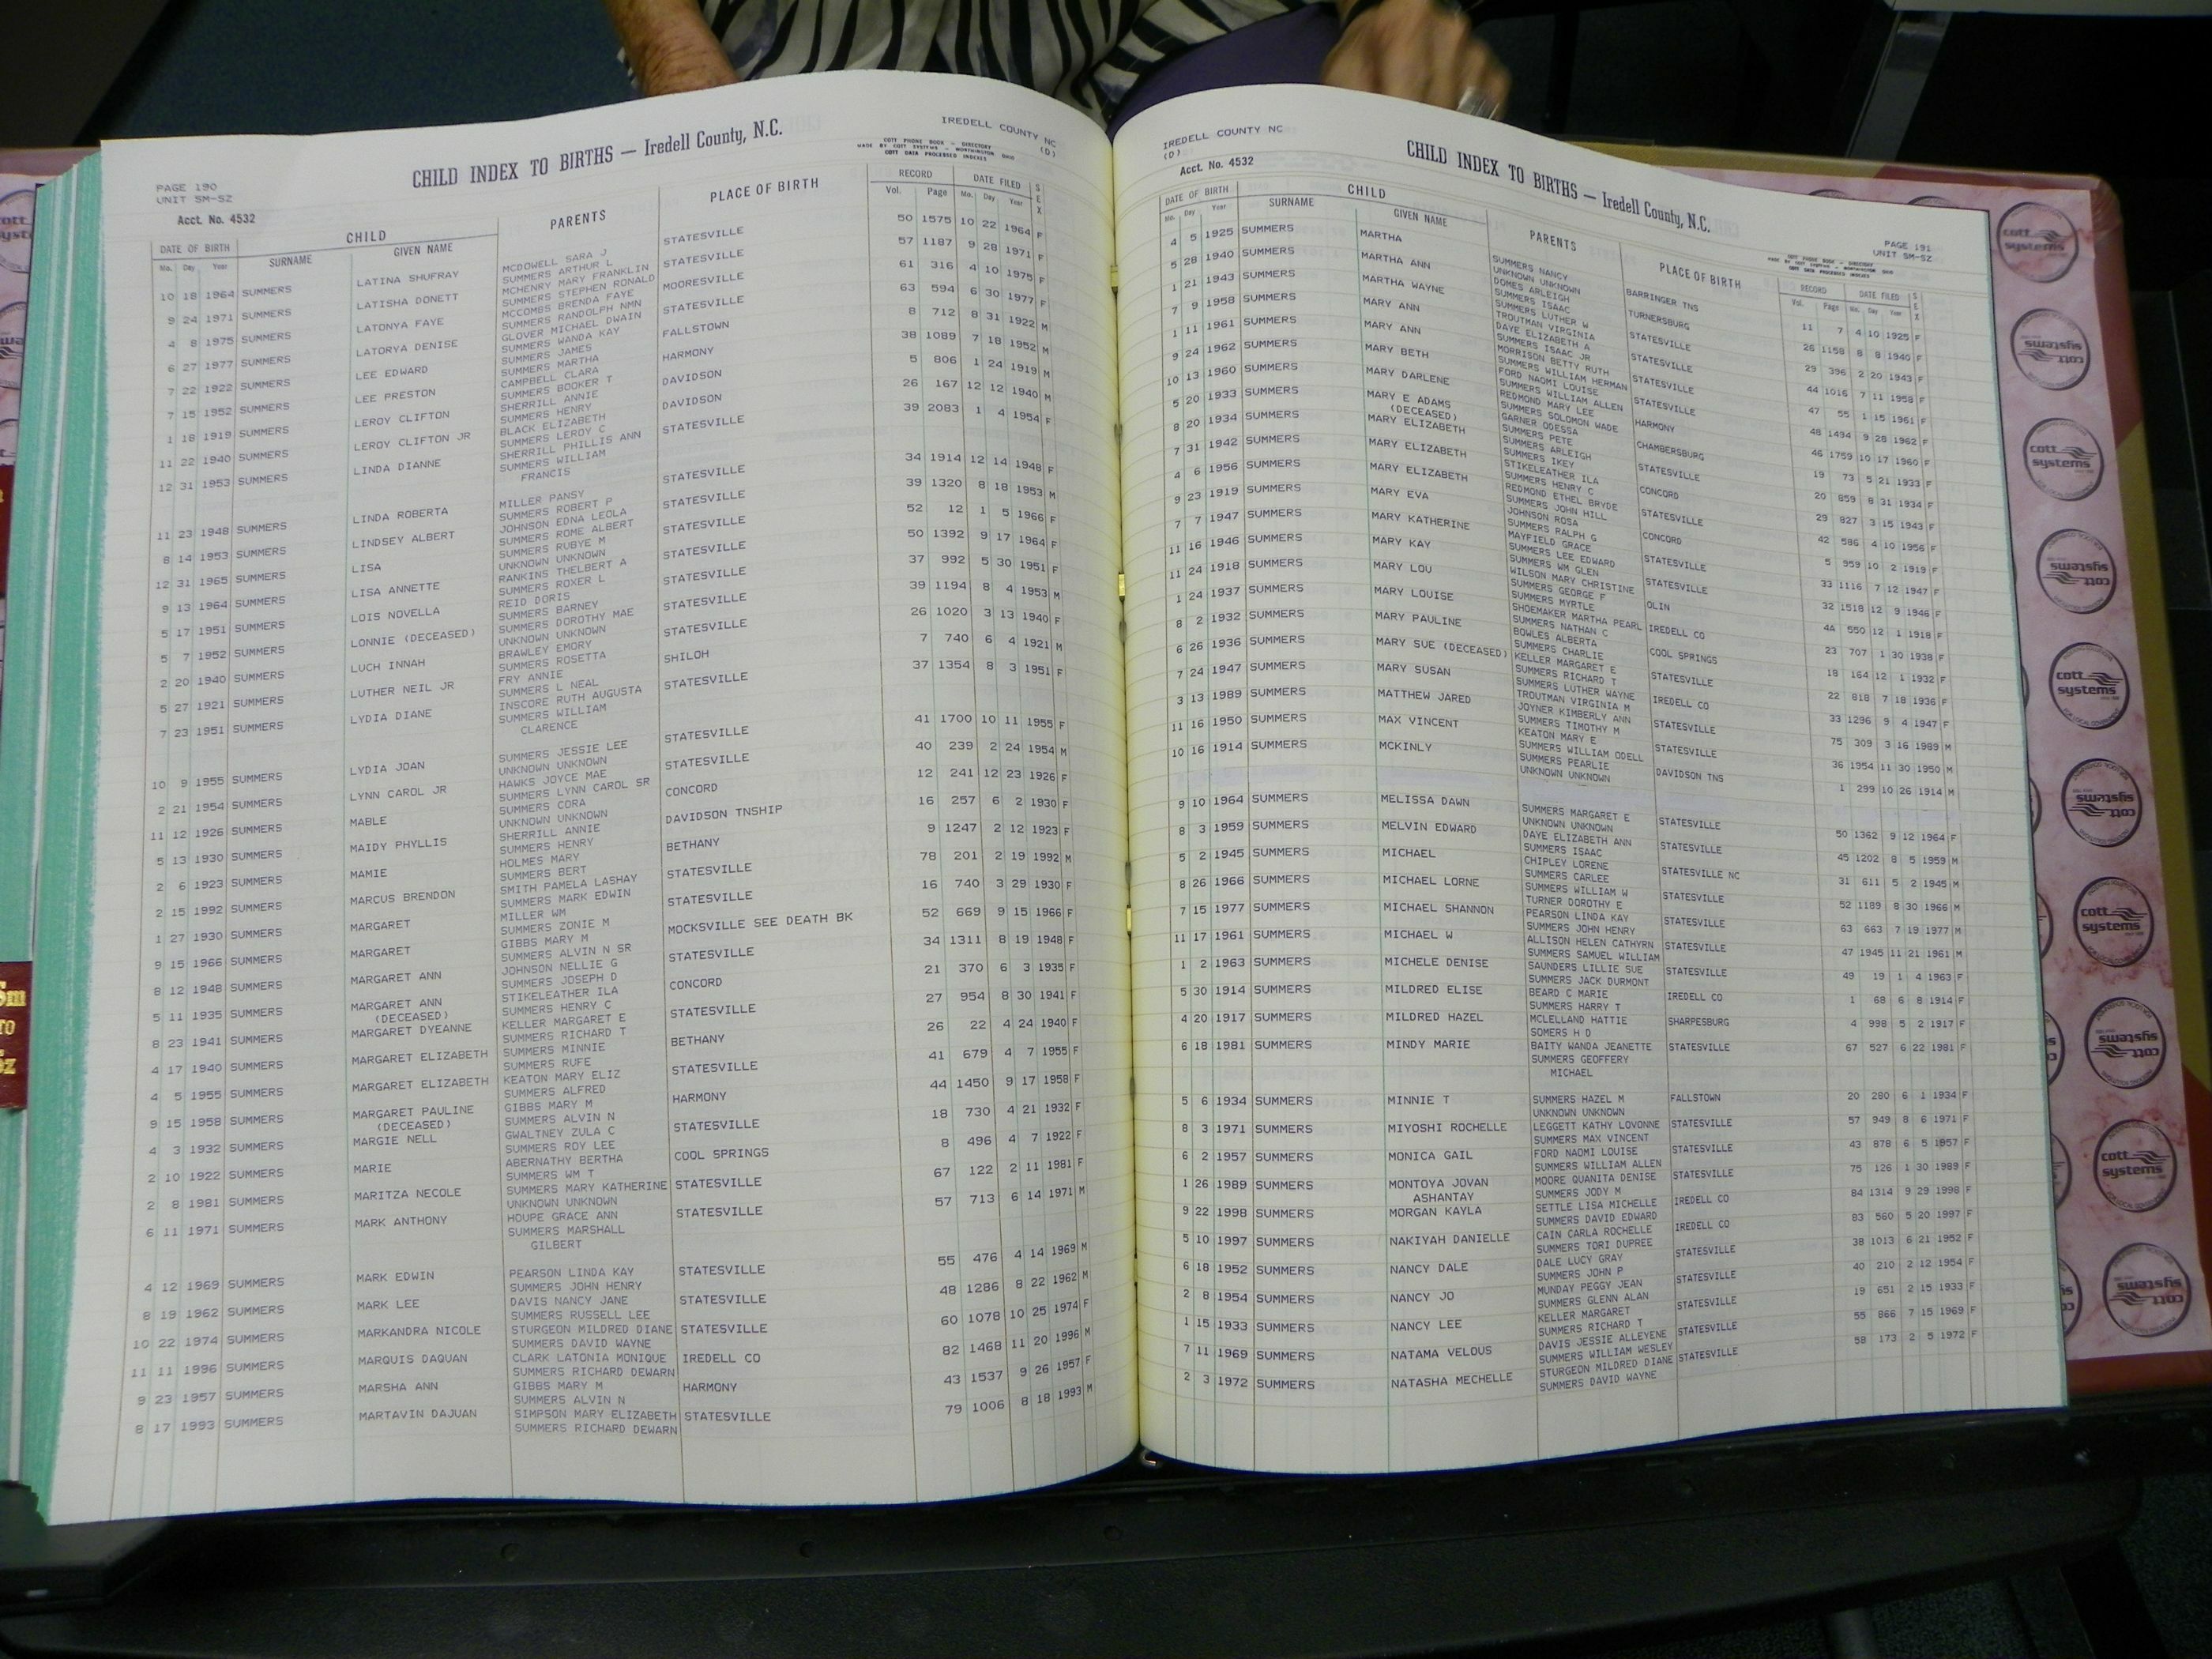 IREDELL COUNTY NC
(D)
COTT PHONE BOOK - DIRECTORY
MADE BY COTT SYSTEMS - WORTHINGTON OHIO
COTT DATA PROCESSED INDEXES
CHILD INDEX TO BIRTHS — Iredell County, N.C.
PAGE 190
UNIT SM-SZ
Acct. No. 4532
DATE OF BIRTH CHILD PARENTS PLACE OF BIRTH RECORD DATE FILED SEX
Mo. Day Year SURNAME GIVEN NAME Vol. Page Mo. Day Year
10 18 1964 SUMMERS LATINA SHUFRAY MCDOWELL SARA J STATESVILLE 50 1575 10 22 1964 F
SUMMERS ARTHUR L
9 24 1971 SUMMERS LATISHA DONETT MCHENRY MARY FRANKLIN STATESVILLE 57 1187 9 28 1971 F
SUMMERS STEPHEN RONALD
4 8 1975 SUMMERS LATONYA FAYE MCCOMBS BRENDA FAYE MOORESVILLE 61 316 4 10 1975 F
SUMMERS RANDOLPH NMN
6 27 1977 SUMMERS LATORYA DENISE GLOVER MICHAEL DWAIN STATESVILLE 63 594 6 30 1977 F
SUMMERS WANDA KAY
7 22 1922 SUMMERS LEE EDWARD SUMMERS JAMES FALLSTOWN 8 712 8 31 1922 M
SUMMERS MARTHA
7 15 1952 SUMMERS LEE PRESTON CAMPBELL CLARA HARMONY 38 1089 7 18 1952 M
SUMMERS BOOKER T
1 18 1919 SUMMERS LEROY CLIFTON SHERRILL ANNIE DAVIDSON 5 806 1 24 1919 M
SUMMERS HENRY
11 22 1940 SUMMERS LEROY CLIFTON JR BLACK ELIZABETH DAVIDSON 26 167 12 12 1940 M
SUMMERS LEROY C
12 31 1953 SUMMERS LINDA DIANNE SHERRILL PHILLIS ANN STATESVILLE 39 2083 1 4 1954 F
SUMMERS WILLIAM
FRANCIS
11 23 1948 SUMMERS LINDA ROBERTA MILLER PANSY STATESVILLE 34 1914 12 14 1948 F
SUMMERS ROBERT P
8 14 1953 SUMMERS LINDSEY ALBERT JOHNSON EDNA LEOLA STATESVILLE 39 1320 8 18 1953 M
SUMMERS ROME ALBERT
12 31 1965 SUMMERS LISA SUMMERS RUBYE M STATESVILLE 52 12 1 5 1966 F
UNKNOWN UNKNOWN
9 13 1964 SUMMERS LISA ANNETTE RANKINS THELBERT A STATESVILLE 50 1392 9 17 1964 F
SUMMERS ROXER L
5 17 1951 SUMMERS LOIS NOVELLA REID DORIS STATESVILLE 37 992 5 30 1951 F
SUMMERS BARNEY
5 7 1952 SUMMERS LONNIE (DECEASED) SUMMERS DOROTHY MAE STATESVILLE 39 1194 8 4 1953 M
UNKNOWN UNKNOWN
2 20 1940 SUMMERS LUCH INNAH BRAWLEY EMORY STATESVILLE 26 1020 3 13 1940 F
SUMMERS ROSETTA
5 27 1921 SUMMERS LUTHER NEIL JR FRY ANNIE SHILOH 7 740 6 4 1921 M
SUMMERS L NEAL
7 23 1951 SUMMERS LYDIA DIANE INSCORE RUTH AUGUSTA STATESVILLE 37 1354 8 3 1951 F
SUMMERS WILLIAM
CLARENCE
10 9 1955 SUMMERS LYDIA JOAN SUMMERS JESSIE LEE STATESVILLE 41 1700 10 11 1955 F
UNKNOWN UNKNOWN
2 21 1954 SUMMERS LYNN CAROL JR HAWKS JOYCE MAE STATESVILLE 40 239 2 24 1954 M
SUMMERS LYNN CAROL SR
11 12 1926 SUMMERS MABLE SUMMERS CORA CONCORD 12 241 12 23 1926 F
UNKNOWN UNKNOWN
5 13 1930 SUMMERS MAIDY PHYLLIS SHERRILL ANNIE DAVIDSON TNSHIP 16 257 6 2 1930 F
SUMMERS HENRY
2 6 1923 SUMMERS MAMIE HOLMES MARY BETHANY 9 1247 2 12 1923 F
SUMMERS BERT
2 15 1992 SUMMERS MARCUS BRENDON SMITH PAMELA LASHAY STATESVILLE 78 201 2 19 1992 M
SUMMERS MARK EDWIN
1 27 1930 SUMMERS MARGARET MILLER WM STATESVILLE 16 740 3 29 1930 F
SUMMERS ZONIE M
9 15 1966 SUMMERS MARGARET GIBBS MARY M MOCKSVILLE SEE DEATH BK 52 669 9 15 1966 F
SUMMERS ALVIN N SR
8 12 1948 SUMMERS MARGARET ANN JOHNSON NELLIE G STATESVILLE 34 1311 8 19 1948 F
SUMMERS JOSEPH D
5 11 1935 SUMMERS MARGARET ANN STIKELEATHER ILA CONCORD 21 370 6 3 1935 F
(DECEASED) SUMMERS HENRY C
8 23 1941 SUMMERS MARGARET DYEANNE KELLER MARGARET E STATESVILLE 27 954 8 30 1941 F
SUMMERS RICHARD T
4 17 1940 SUMMERS MARGARET ELIZABETH SUMMERS MINNIE BETHANY 26 22 4 24 1940 F
SUMMERS RUFE
4 5 1955 SUMMERS MARGARET ELIZABETH KEATON MARY ELIZ STATESVILLE 41 679 4 7 1955 F
SUMMERS ALFRED
9 15 1958 SUMMERS MARGARET PAULINE GIBBS MARY M HARMONY 44 1450 9 17 1958 F
(DECEASED) SUMMERS ALVIN N
4 3 1932 SUMMERS MARGIE NELL GWALTNEY ZULA C STATESVILLE 18 730 4 21 1932 F
SUMMERS ROY LEE
2 10 1922 SUMMERS MARIE ABERNATHY BERTHA COOL SPRINGS 8 496 4 7 1922 F
SUMMERS WM T
2 8 1981 SUMMERS MARITZA NECOLE SUMMERS MARY KATHERINE STATESVILLE 67 122 2 11 1981 F
UNKNOWN UNKNOWN
6 11 1971 SUMMERS MARK ANTHONY HOUPE GRACE ANN STATESVILLE 57 713 6 14 1971 M
SUMMERS MARSHALL
GILBERT
4 12 1969 SUMMERS MARK EDWIN PEARSON LINDA KAY STATESVILLE 55 476 4 14 1969 M
SUMMERS JOHN HENRY
8 19 1962 SUMMERS MARK LEE DAVIS NANCY JANE STATESVILLE 48 1286 8 22 1962 M
SUMMERS RUSSELL LEE
10 22 1974 SUMMERS MARKANDRA NICOLE STURGEON MILDRED DIANE STATESVILLE 60 1078 10 25 1974 F
SUMMERS DAVID WAYNE
11 11 1996 SUMMERS MARQUIS DAQUAN CLARK LATONIA MONIQUE IREDELL CO 82 1468 11 20 1996 M
SUMMERS RICHARD DEWARN
9 23 1957 SUMMERS MARSHA ANN GIBBS MARY M HARMONY 43 1537 9 26 1957 F
SUMMERS ALVIN N
8 17 1993 SUMMERS MARTAVIN DAJUAN SIMPSON MARY ELIZABETH STATESVILLE 79 1006 8 18 1993 M
SUMMERS RICHARD DEWARN
IREDELL COUNTY NC
(D)
Acct. No. 4532
CHILD INDEX TO BIRTHS — Iredell County, N.C.
PAGE 191
UNIT SM-SZ
COTT PHONE BOOK - DIRECTORY
MADE BY COTT SYSTEMS - WORTHINGTON OHIO
COTT DATA PROCESSED INDEXES
DATE OF BIRTH CHILD PARENTS PLACE OF BIRTH RECORD DATE FILED SEX
Mo. Day Year SURNAME GIVEN NAME Vol. Page Mo. Day Year
4 5 1925 SUMMERS MARTHA SUMMERS NANCY BARRINGER TNS 11 7 4 10 1925 F
UNKNOWN UNKNOWN
5 28 1940 SUMMERS MARTHA ANN DOMES ARLEIGH TURNERSBURG 26 1158 8 8 1940 F
SUMMERS ISAAC
1 21 1943 SUMMERS MARTHA WAYNE SUMMERS LUTHER W STATESVILLE 29 396 2 20 1943 F
TROUTMAN VIRGINIA
7 9 1958 SUMMERS MARY ANN DAYE ELIZABETH A STATESVILLE 44 1016 7 11 1958 F
SUMMERS ISAAC JR
1 11 1961 SUMMERS MARY ANN MORRISON BETTY RUTH STATESVILLE 47 55 1 15 1961 F
SUMMERS WILLIAM HERMAN
9 24 1962 SUMMERS MARY BETH FORD NAOMI LOUISE HARMONY 48 1494 9 28 1962 F
SUMMERS WILLIAM ALLEN
10 13 1960 SUMMERS MARY DARLENE REDMOND MARY LEE CHAMBERSBURG 46 1759 10 17 1960 F
SUMMERS SOLOMON WADE
5 20 1933 SUMMERS MARY E ADAMS GARNER ODESSA STATESVILLE 19 73 5 21 1933 F
(DECEASED) SUMMERS PETE
8 20 1934 SUMMERS MARY ELIZABETH SUMMERS ARLEIGH CONCORD 20 859 8 31 1934 F
SUMMERS IKEY
7 31 1942 SUMMERS MARY ELIZABETH STIKELEATHER ILA STATESVILLE 29 827 3 15 1943 F
SUMMERS HENRY C
4 6 1956 SUMMERS MARY ELIZABETH REDMOND ETHEL BRYDE CONCORD 42 586 4 10 1956 F
SUMMERS JOHN HILL
9 23 1919 SUMMERS MARY EVA JOHNSON ROSA STATESVILLE 5 959 10 2 1919 F
SUMMERS RALPH G
7 7 1947 SUMMERS MARY KATHERINE MAYFIELD GRACE STATESVILLE 33 1116 7 12 1947 F
SUMMERS LEE EDWARD
11 16 1946 SUMMERS MARY KAY SUMMERS WM GLEN OLIN 32 1518 12 9 1946 F
WILSON MARY CHRISTINE
11 24 1918 SUMMERS MARY LOU SUMMERS GEORGE F IREDELL CO 4A 550 12 1 1918 F
SUMMERS MYRTLE
1 24 1937 SUMMERS MARY LOUISE SHOEMAKER MARTHA PEARL COOL SPRINGS 23 707 1 30 1938 F
SUMMERS NATHAN C
8 2 1932 SUMMERS MARY PAULINE BOWLES ALBERTA STATESVILLE 18 164 12 1 1932 F
SUMMERS CHARLIE
6 26 1936 SUMMERS MARY SUE (DECEASED) KELLER MARGARET E IREDELL CO 22 818 7 18 1936 F
SUMMERS RICHARD T
7 24 1947 SUMMERS MARY SUSAN SUMMERS LUTHER WAYNE STATESVILLE 33 1296 9 4 1947 F
TROUTMAN VIRGINIA M
3 13 1989 SUMMERS MATTHEW JARED JOYNER KIMBERLY ANN STATESVILLE 75 309 3 16 1989 M
SUMMERS TIMOTHY M
11 16 1950 SUMMERS MAX VINCENT KEATON MARY E DAVIDSON TNS 36 1954 11 30 1950 M
SUMMERS WILLIAM ODELL
10 16 1914 SUMMERS MCKINLY SUMMERS PEARLIE 1 299 10 26 1914 M
UNKNOWN UNKNOWN
9 10 1964 SUMMERS MELISSA DAWN SUMMERS MARGARET E STATESVILLE 50 1362 9 12 1964 F
UNKNOWN UNKNOWN
8 3 1959 SUMMERS MELVIN EDWARD DAYE ELIZABETH ANN STATESVILLE 45 1202 8 5 1959 M
SUMMERS ISAAC
5 2 1945 SUMMERS MICHAEL CHIPLEY LORENE STATESVILLE NC 31 611 5 2 1945 M
SUMMERS CARLEE
8 26 1966 SUMMERS MICHAEL LORNE SUMMERS WILLIAM W STATESVILLE 52 1189 8 30 1966 M
TURNER DOROTHY E
7 15 1977 SUMMERS MICHAEL SHANNON PEARSON LINDA KAY STATESVILLE 63 663 7 19 1977 M
SUMMERS JOHN HENRY
11 17 1961 SUMMERS MICHAEL W ALLISON HELEN CATHYRN STATESVILLE 47 1945 11 21 1961 M
SUMMERS SAMUEL WILLIAM
1 2 1963 SUMMERS MICHELE DENISE SAUNDERS LILLIE SUE STATESVILLE 49 19 1 4 1963 F
SUMMERS JACK DURMONT
5 30 1914 SUMMERS MILDRED ELISE BEARD C MARIE IREDELL CO 1 68 6 8 1914 F
SUMMERS HARRY T
4 20 1917 SUMMERS MILDRED HAZEL MCLELLAND HATTIE SHARPESBURG 4 998 5 2 1917 F
SOMERS H D
6 18 1981 SUMMERS MINDY MARIE BAITY WANDA JEANETTE STATESVILLE 67 527 6 22 1981 F
SUMMERS GEOFFERY
MICHAEL
5 6 1934 SUMMERS MINNIE T SUMMERS HAZEL M FALLSTOWN 20 280 6 1 1934 F
UNKNOWN UNKNOWN
8 3 1971 SUMMERS MIYOSHI ROCHELLE LEGGETT KATHY LOVONNE STATESVILLE 57 949 8 6 1971 F
SUMMERS MAX VINCENT
6 2 1957 SUMMERS MONICA GAIL FORD NAOMI LOUISE STATESVILLE 43 878 6 5 1957 F
SUMMERS WILLIAM ALLEN
1 26 1989 SUMMERS MONTOYA JOVAN MOORE QUANITA DENISE STATESVILLE 75 126 1 30 1989 F
ASHANTAY SUMMERS JODY M
9 22 1998 SUMMERS MORGAN KAYLA SETTLE LISA MICHELLE IREDELL CO 84 1314 9 29 1998 F
SUMMERS DAVID EDWARD
5 10 1997 SUMMERS NAKIYAH DANIELLE CAIN CARLA ROCHELLE IREDELL CO 83 560 5 20 1997 F
SUMMERS TORI DUPREE
6 18 1952 SUMMERS NANCY DALE DALE LUCY GRAY STATESVILLE 38 1013 6 21 1952 F
SUMMERS JOHN P
2 8 1954 SUMMERS NANCY JO MUNDAY PEGGY JEAN STATESVILLE 40 210 2 12 1954 F
SUMMERS GLENN ALAN
1 15 1933 SUMMERS NANCY LEE KELLER MARGARET STATESVILLE 19 651 2 15 1933 F
SUMMERS RICHARD T
7 11 1969 SUMMERS NATAMA VELOUS DAVIS JESSIE ALLEYENE STATESVILLE 55 866 7 15 1969 F
SUMMERS WILLIAM WESLEY
2 3 1972 SUMMERS NATASHA MECHELLE STURGEON MILDRED DIANE STATESVILLE 58 173 2 5 1972 F
SUMMERS DAVID WAYNE
cott systems
Sm
to
Sz